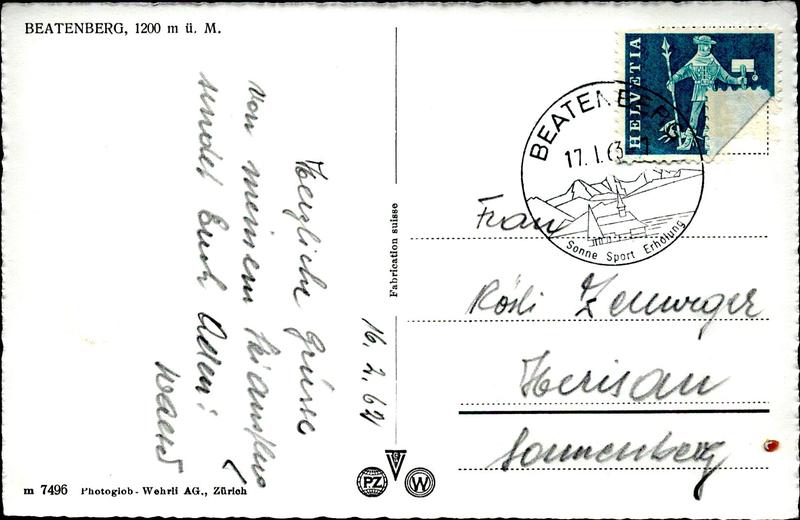 BEATENBERG, 1200 m ü. M.
16. 2. 62
Herzliche Grüsse
von meinem Skiausflug
sendet Euch Allen!
HELVETIA
BEATENBERG
17. I. 63
Sonne Sport Erholung
Frau
Rösli Zellweger
Herisau
Sonnenberg
Fabrication suisse
PZ
W
m 7496 Photoglob-Wehrli AG., Zürich